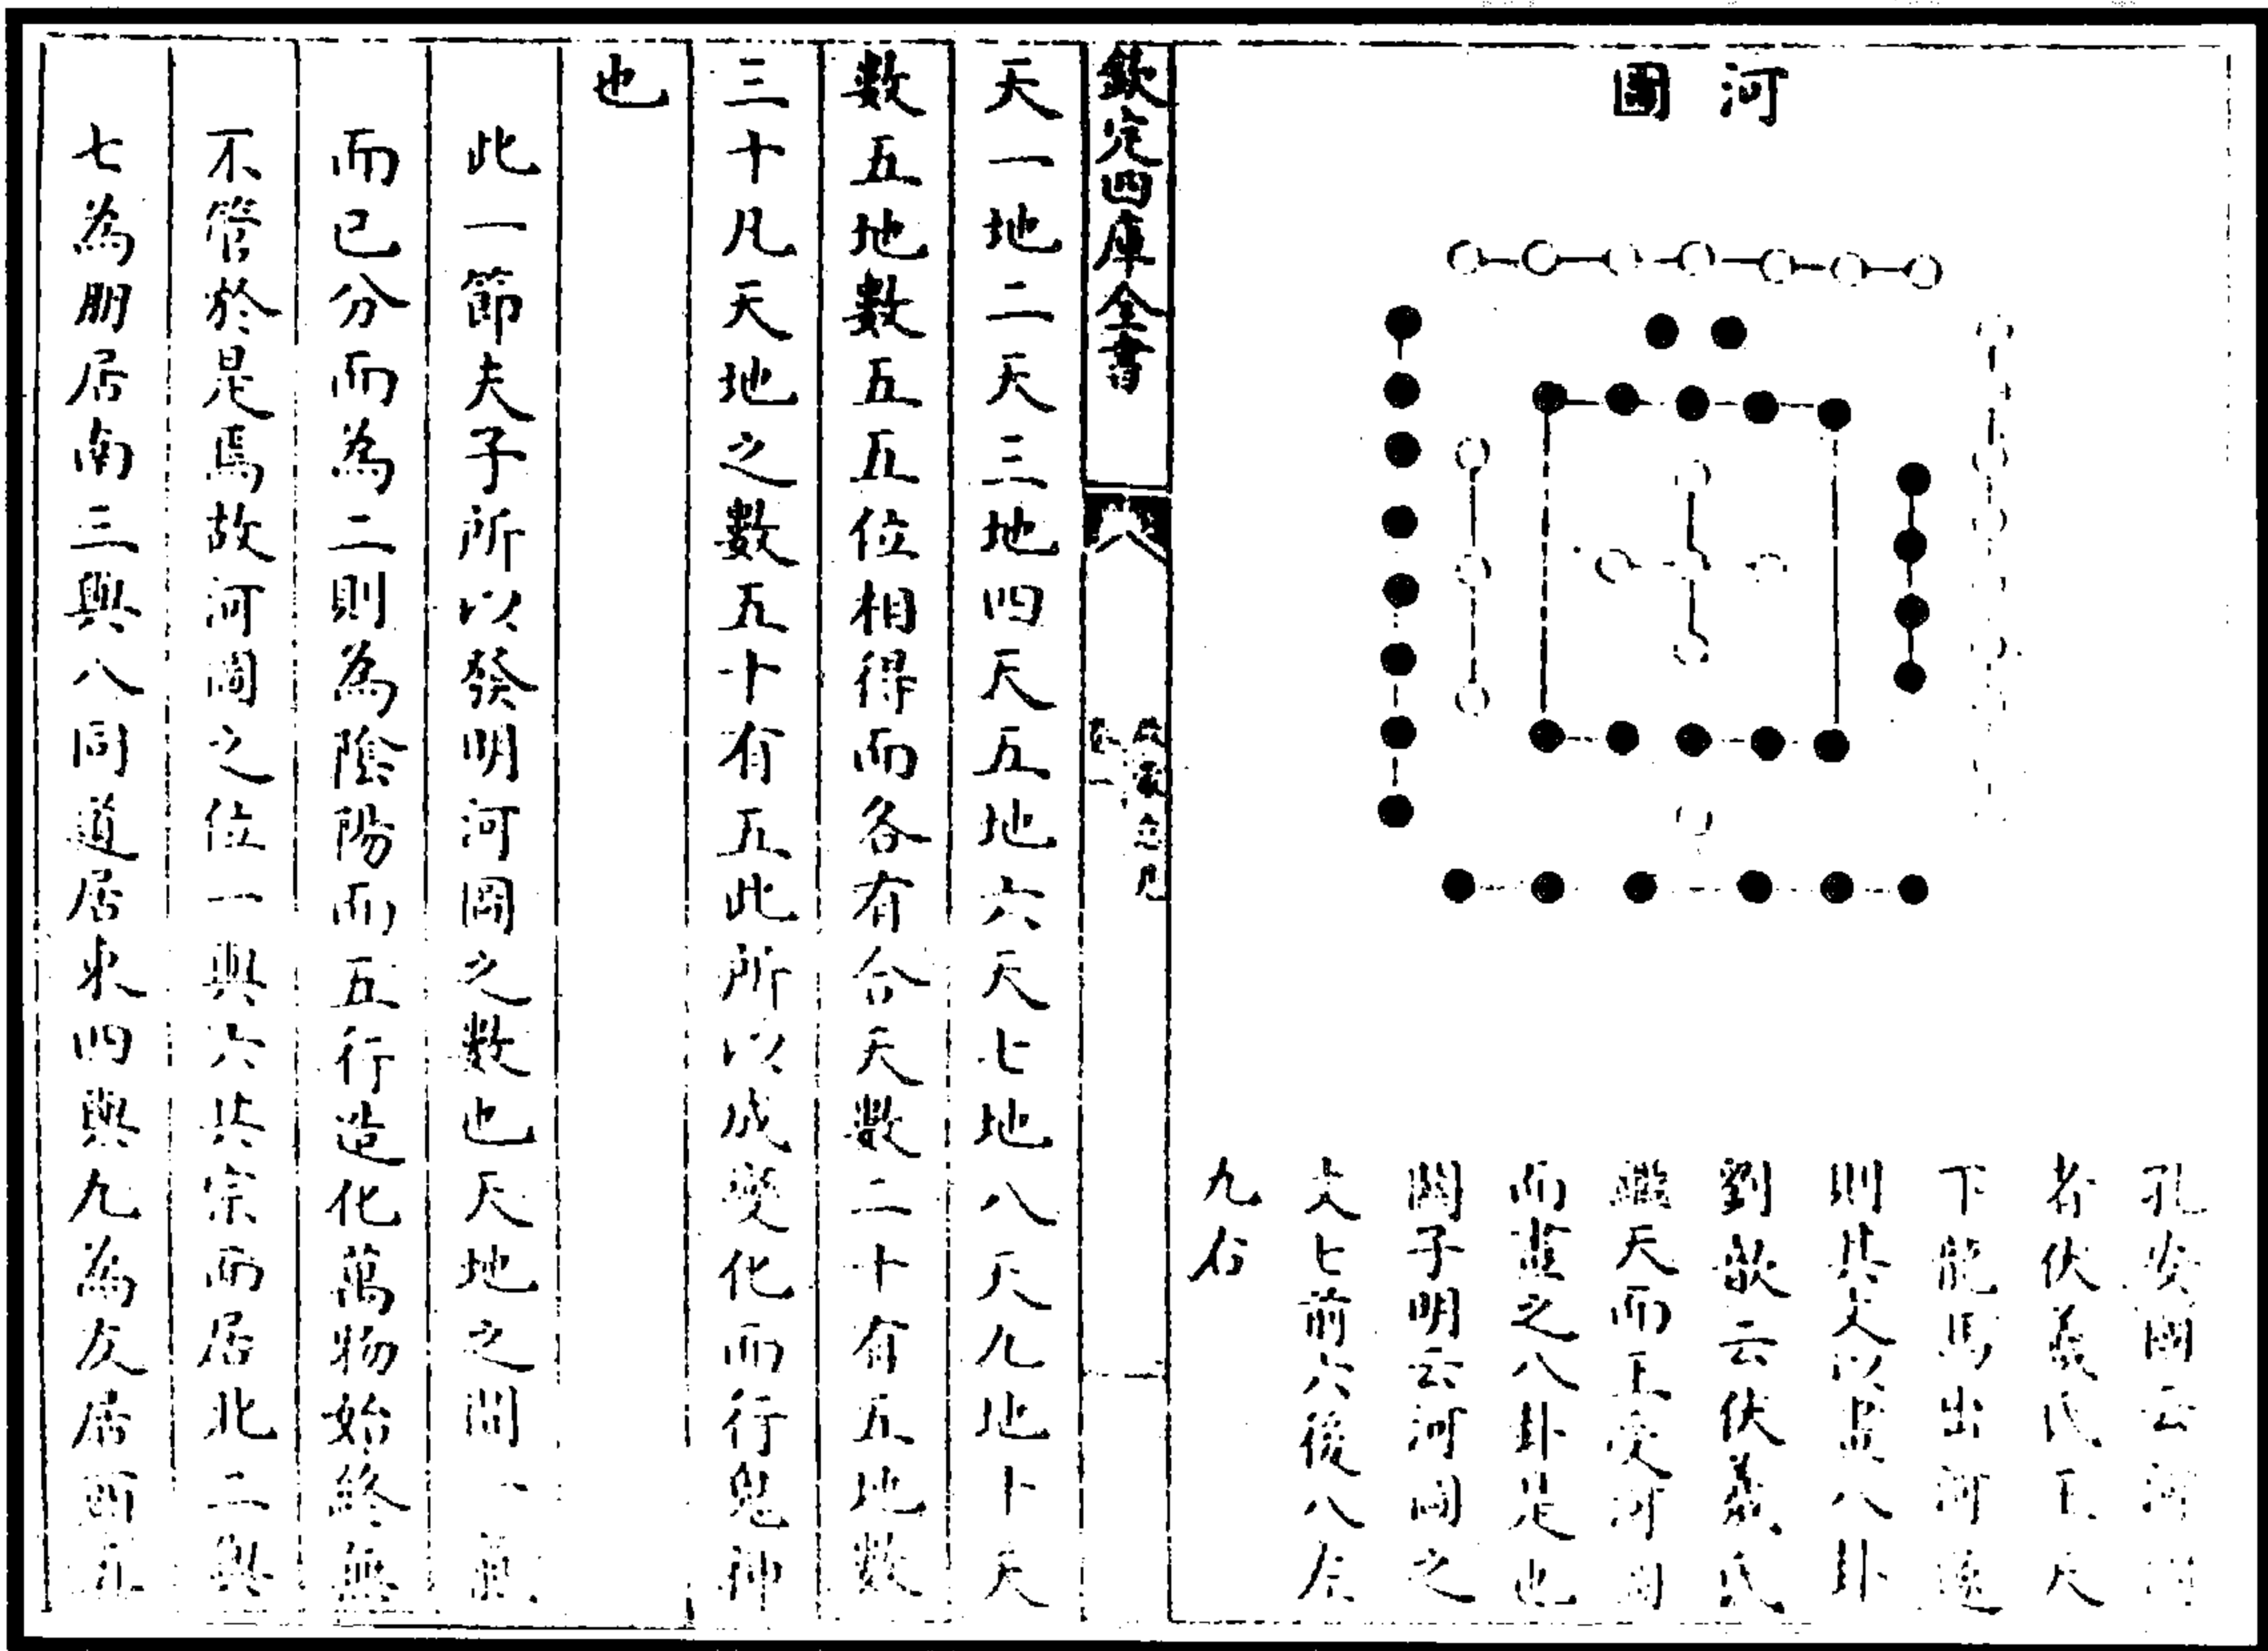 河圖
孔安國云河圖
者伏羲氏王天
下龍馬出河遂
則其文以畫八卦
劉歆云伏羲氏
繼天而王受河圖
而畫之八卦是也
關子明云河圖之
文七前六後八左
九右
欽定四庫全書
卷一
天一地二天三地四天五地六天七地八天九地十天
數五地數五五位相得而各有合天數二十有五地數
三十凡天地之數五十有五此所以成變化而行鬼神
也
此一節夫子所以發明河圖之數也天地之間一氣
而已分而為二則為陰陽而五行造化萬物始終無
不管於是焉故河圖之位一與六共宗而居北二與
七為朋居南三與八同道居東四與九為友居西五